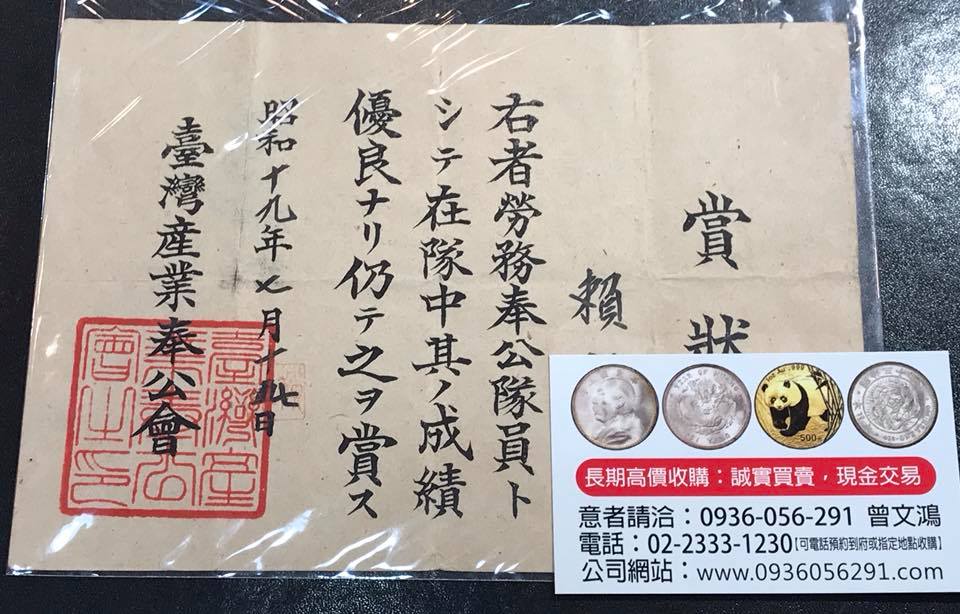 賞狀
賴
右者勞務奉公隊員ト
シテ在隊中其ノ成績
優良ナリ仍テ之ヲ賞ス
昭和十九年七月十九日
臺灣産業奉公會
臺灣産
業奉公
會之印
500元
長期高價收購：誠實買賣，現金交易
意者請洽：0936-056-291 曾文鴻
電話：02-2333-1230【可電話預約到府或指定地點收購】
公司網站：www.0936056291.com